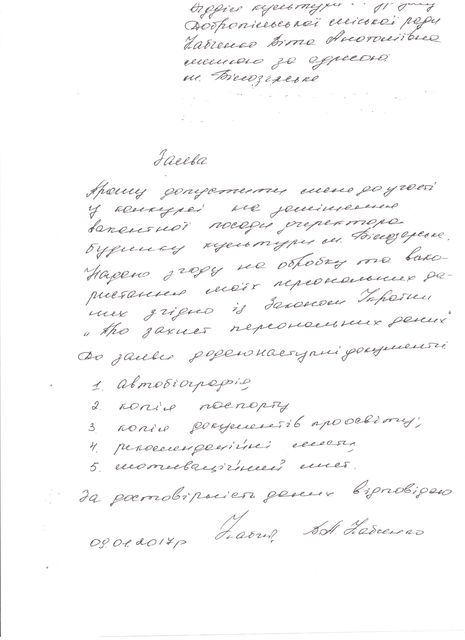 Відділ культури
Добропільської міської ради
Бабченко Віта Анатоліївна
мешкаю за адресою
м. Білозерське
Заява
Прошу допустити мене до участі
у конкурсі на заміщення
вакантної посади директора
будинку культури м. Білозерське.
Надаю згоду на обробку та вико-
ристання моїх персональних да-
них згідно із Законом України
„Про захист персональних даних"
До заяви додаю наступні документи
1. автобіографія
2. копія паспорту
3 копія документів про освіту;
4. рекомендаційні листи
5. мотиваційний лист.
За достовірність даних відповідаю
09.01.2017р